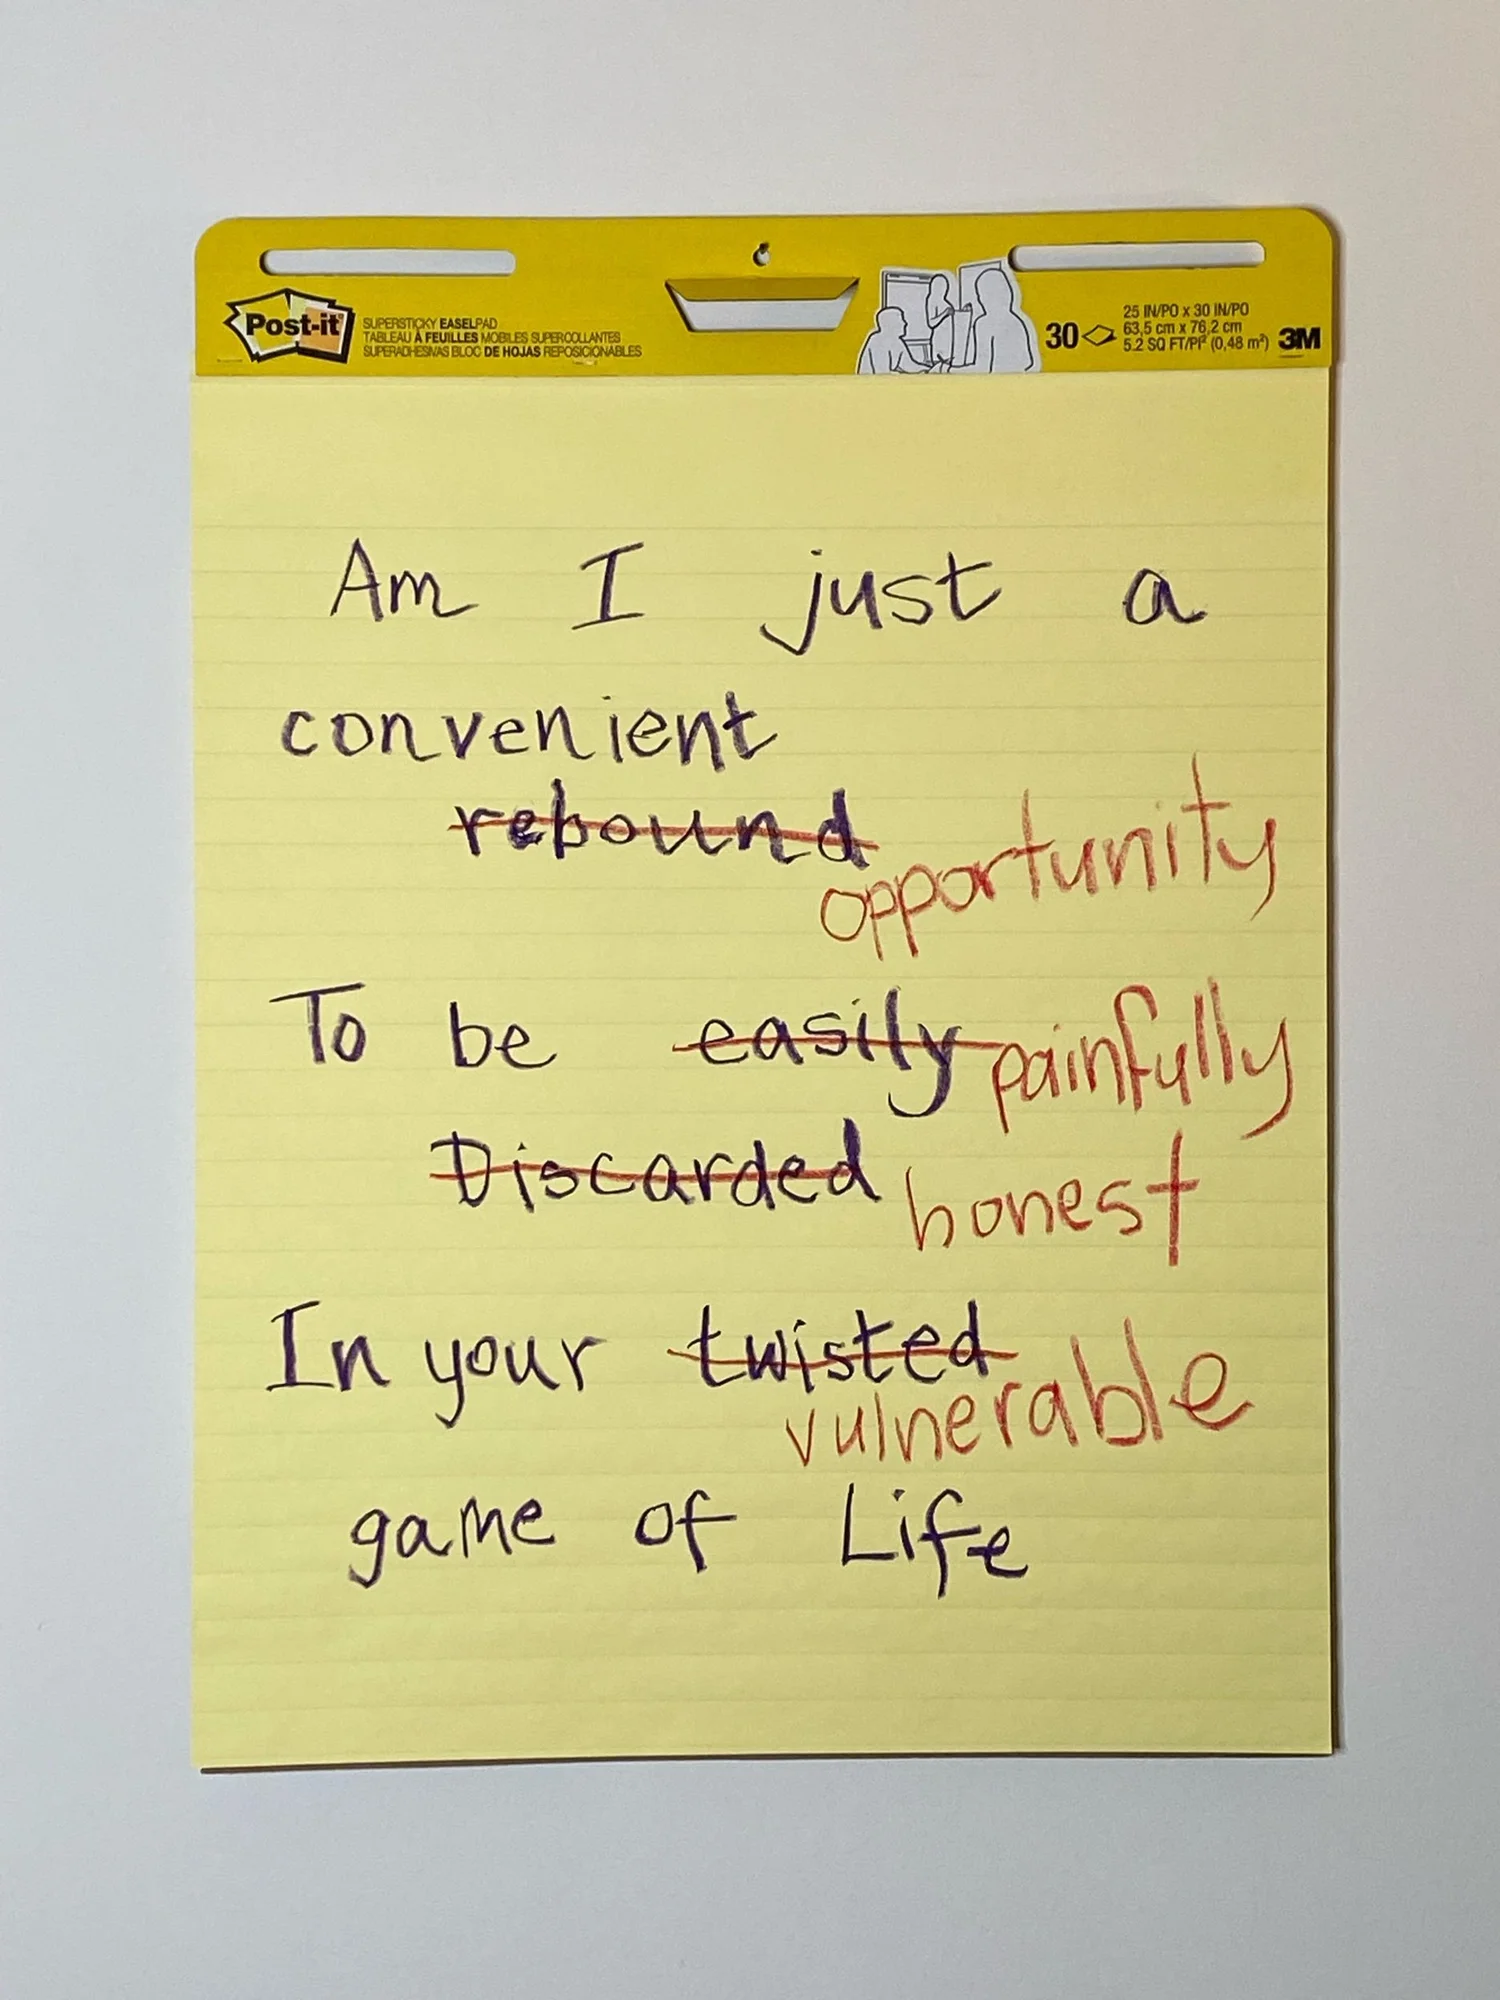 Post-it
SUPERSTICKY EASELPAD
TABLEAU À FEUILLES MOBILES SUPERCOLLANTES
SUPERADHESIVAS BLOC DE HOJAS REPOSICIONABLES
30
25 IN/PO x 30 IN/PO
63,5 cm x 76,2 cm
5.2 SQ FT/PI² (0,48 m²)
3M
Am I just a
convenient
rebound opportunity
To be easily painfully
Discarded honest
In your twisted vulnerable
game of Life